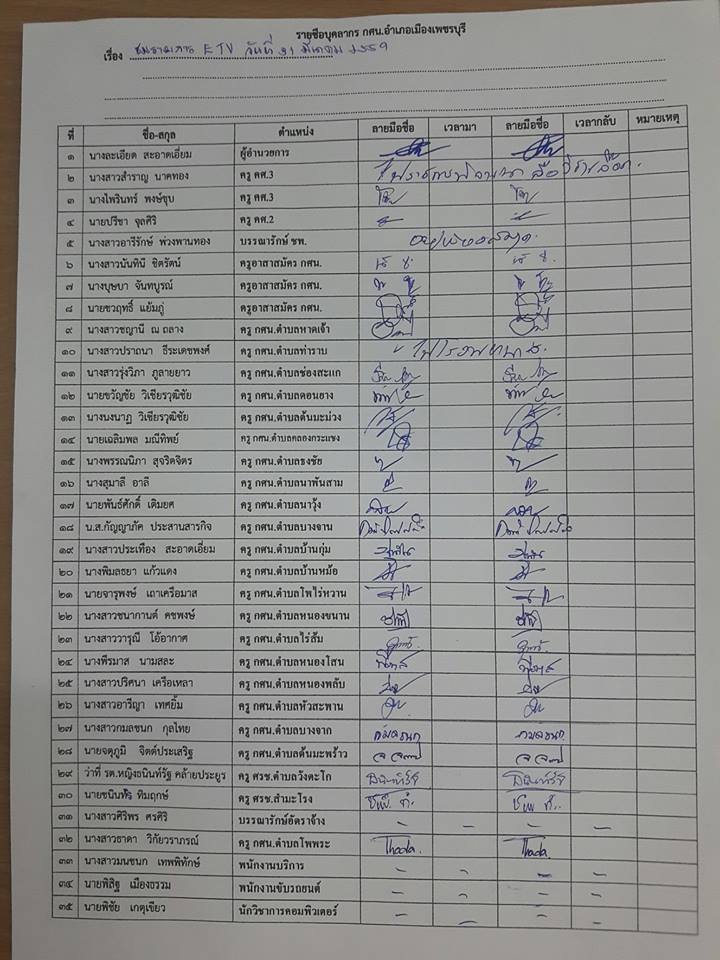 รายชื่อบุคลากร กศน.อำเภอเมืองเพชรบุรี
เรื่อง ชมรายการ ETV วันที่ 31 มีนาคม 2559
ที่ ชื่อ-สกุล ตำแหน่ง ลายมือชื่อ เวลามา ลายมือชื่อ เวลากลับ หมายเหตุ
๑ นางละเอียด สะอาดเอี่ยม ผู้อำนวยการ
๒ นางสาวสำราญ นาคทอง ครู คศ.3
๓ นางไพรินทร์ พงษ์ชุบ ครู คศ.3
๔ นายปรีชา จุลศิริ ครู คศ.2
๕ นางสาวอารีรักษ์ พ่วงพานทอง บรรณารักษ์ ชพ.
๖ นางสาวนันทินี ชิตรัตน์ ครูอาสาสมัคร กศน.
๗ นางบุษบา จันทบูรณ์ ครูอาสาสมัคร กศน.
๘ นายชวฤทธิ์ แย้มภู่ ครูอาสาสมัคร กศน.
๙ นางสาวชญานี ณ ถลาง ครู กศน.ตำบลหาดเจ้า
๑๐ นางสาวปราถนา ธีระเดชพงศ์ ครู กศน.ตำบลท่าราบ
๑๑ นางสาวรุ่งวิภา ภูลายยาว ครู กศน.ตำบลช่องสะแก
๑๒ นายขวัญชัย วิเชียรวุฒิชัย ครู กศน.ตำบลดอนยาง
๑๓ นางนงนาฏ วิเชียรวุฒิชัย ครู กศน.ตำบลต้นมะม่วง
๑๔ นายเฉลิมพล มณีทิพย์ ครู กศน.ตำบลคลองกระแชง
๑๕ นางพรรณนิภา สุจริตจิตร ครู กศน.ตำบลธงชัย
๑๖ นางสุมาลี อาลี ครู กศน.ตำบลนาพันสาม
๑๗ นายพันธ์ศักดิ์ เติมยศ ครู กศน.ตำบลนาวุ้ง
๑๘ น.ส.กัญญาภัค ประสานสารกิจ ครู กศน.ตำบลบางจาน
๑๙ นางสาวประเทือง สะอาดเอี่ยม ครู กศน.ตำบลบ้านกุ่ม
๒๐ นางพิมลธยา แก้วแดง ครู กศน.ตำบลบ้านหม้อ
๒๑ นายจารุพงษ์ เถาเครือมาส ครู กศน.ตำบลโพไร่หวาน
๒๒ นางสาวชนากานต์ คชพงษ์ ครู กศน.ตำบลหนองขนาน
๒๓ นางสาววารุณี โอ้อากาศ ครู กศน.ตำบลไร่ส้ม
๒๔ นางพีรมาส นามสละ ครู กศน.ตำบลหนองโสน
๒๕ นางสาวปริศนา เครือเหลา ครู กศน.ตำบลหนองพลับ
๒๖ นางสาวอารีญา เทศยิ้ม ครู กศน.ตำบลหัวสะพาน
๒๗ นางสาวกมลชนก กุลไทย ครู กศน.ตำบลบางจาก กมลชนก กมลชนก
๒๘ นายจตุภูมิ จิตต์ประเสริฐ ครู กศน.ตำบลต้นมะพร้าว
๒๙ ว่าที่ รต.หญิงธนินท์รัฐ คล้ายประยูร ครู ศรช.ตำบลวังตะโก
๓๐ นายชนินทัร ทิมฤกษ์ ครู ศรช.สำมะโรง
๓๑ นางสาวศิริพร ศรศิริ บรรณารักษ์อัตราจ้าง – – – –
๓๒ นางสาวธาดา วิกัยวราภรณ์ ครู กศน.ตำบลโพพระ Thada. Thada.
๓๓ นางสาวมนชนก เทพพิทักษ์ พนักงานบริการ – – – –
๓๔ นายพิสิฐ เมืองธรรม พนักงานขับรถยนต์ – – – –
๓๕ นายพิชัย เกตุเขียว นักวิชาการคอมพิวเตอร์ – – – –